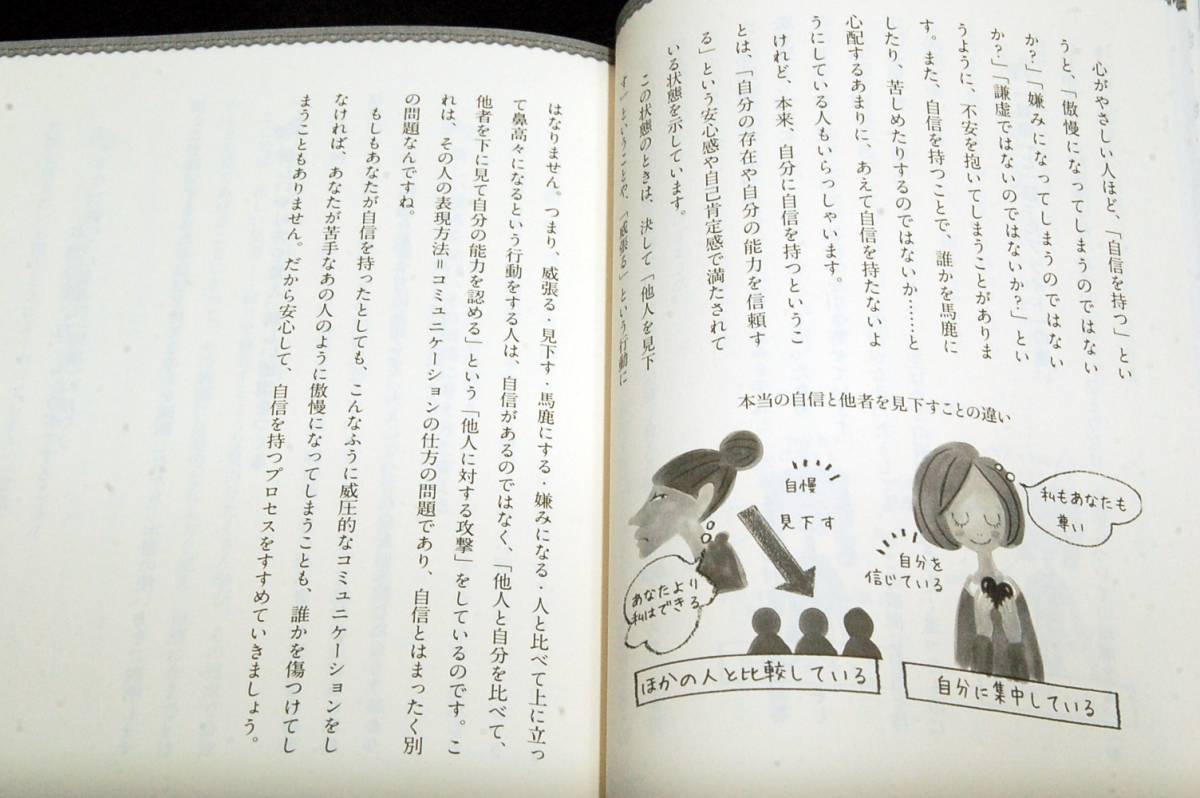 心がやさしい人ほど、「自信を持つ」とい
うと、「傲慢になってしまうのではない
か？」「嫌みになってしまうのではない
か？」「謙虚ではないのではないか？」とい
うように、不安を抱いてしまうことがありま
す。また、自信を持つことで、誰かを馬鹿に
したり、苦しめたりするのではないか……と
心配するあまりに、あえて自信を持たないよ
うにしている人もいらっしゃいます。
けれど、本来、自分に自信を持つというこ
とは、「自分の存在や自分の能力を信頼す
る」という安心感や自己肯定感で満たされて
いる状態を示しています。
この状態のときは、決して「他人を見下
す」ということや、「威張る」という行動に
本当の自信と他者を見下すことの違い
私もあなたも
尊い
自分を
信じている
自分に集中している
自慢
見下す
あなたより
私はできる
ほかの人と比較している
はなりません。つまり、威張る・見下す・馬鹿にする・嫌みになる・人と比べて上に立っ
て鼻高々になるという行動をする人は、自信があるのではなく、「他人と自分を比べて、
他者を下に見て自分の能力を認める」という「他人に対する攻撃」をしているのです。こ
れは、その人の表現方法＝コミュニケーションの仕方の問題であり、自信とはまったく別
の問題なんですね。
もしもあなたが自信を持ったとしても、こんなふうに威圧的なコミュニケーションをし
なければ、あなたが苦手なあの人のように傲慢になってしまうことも、誰かを傷つけてし
まうこともありません。だから安心して、自信を持つプロセスをすすめていきましょう。